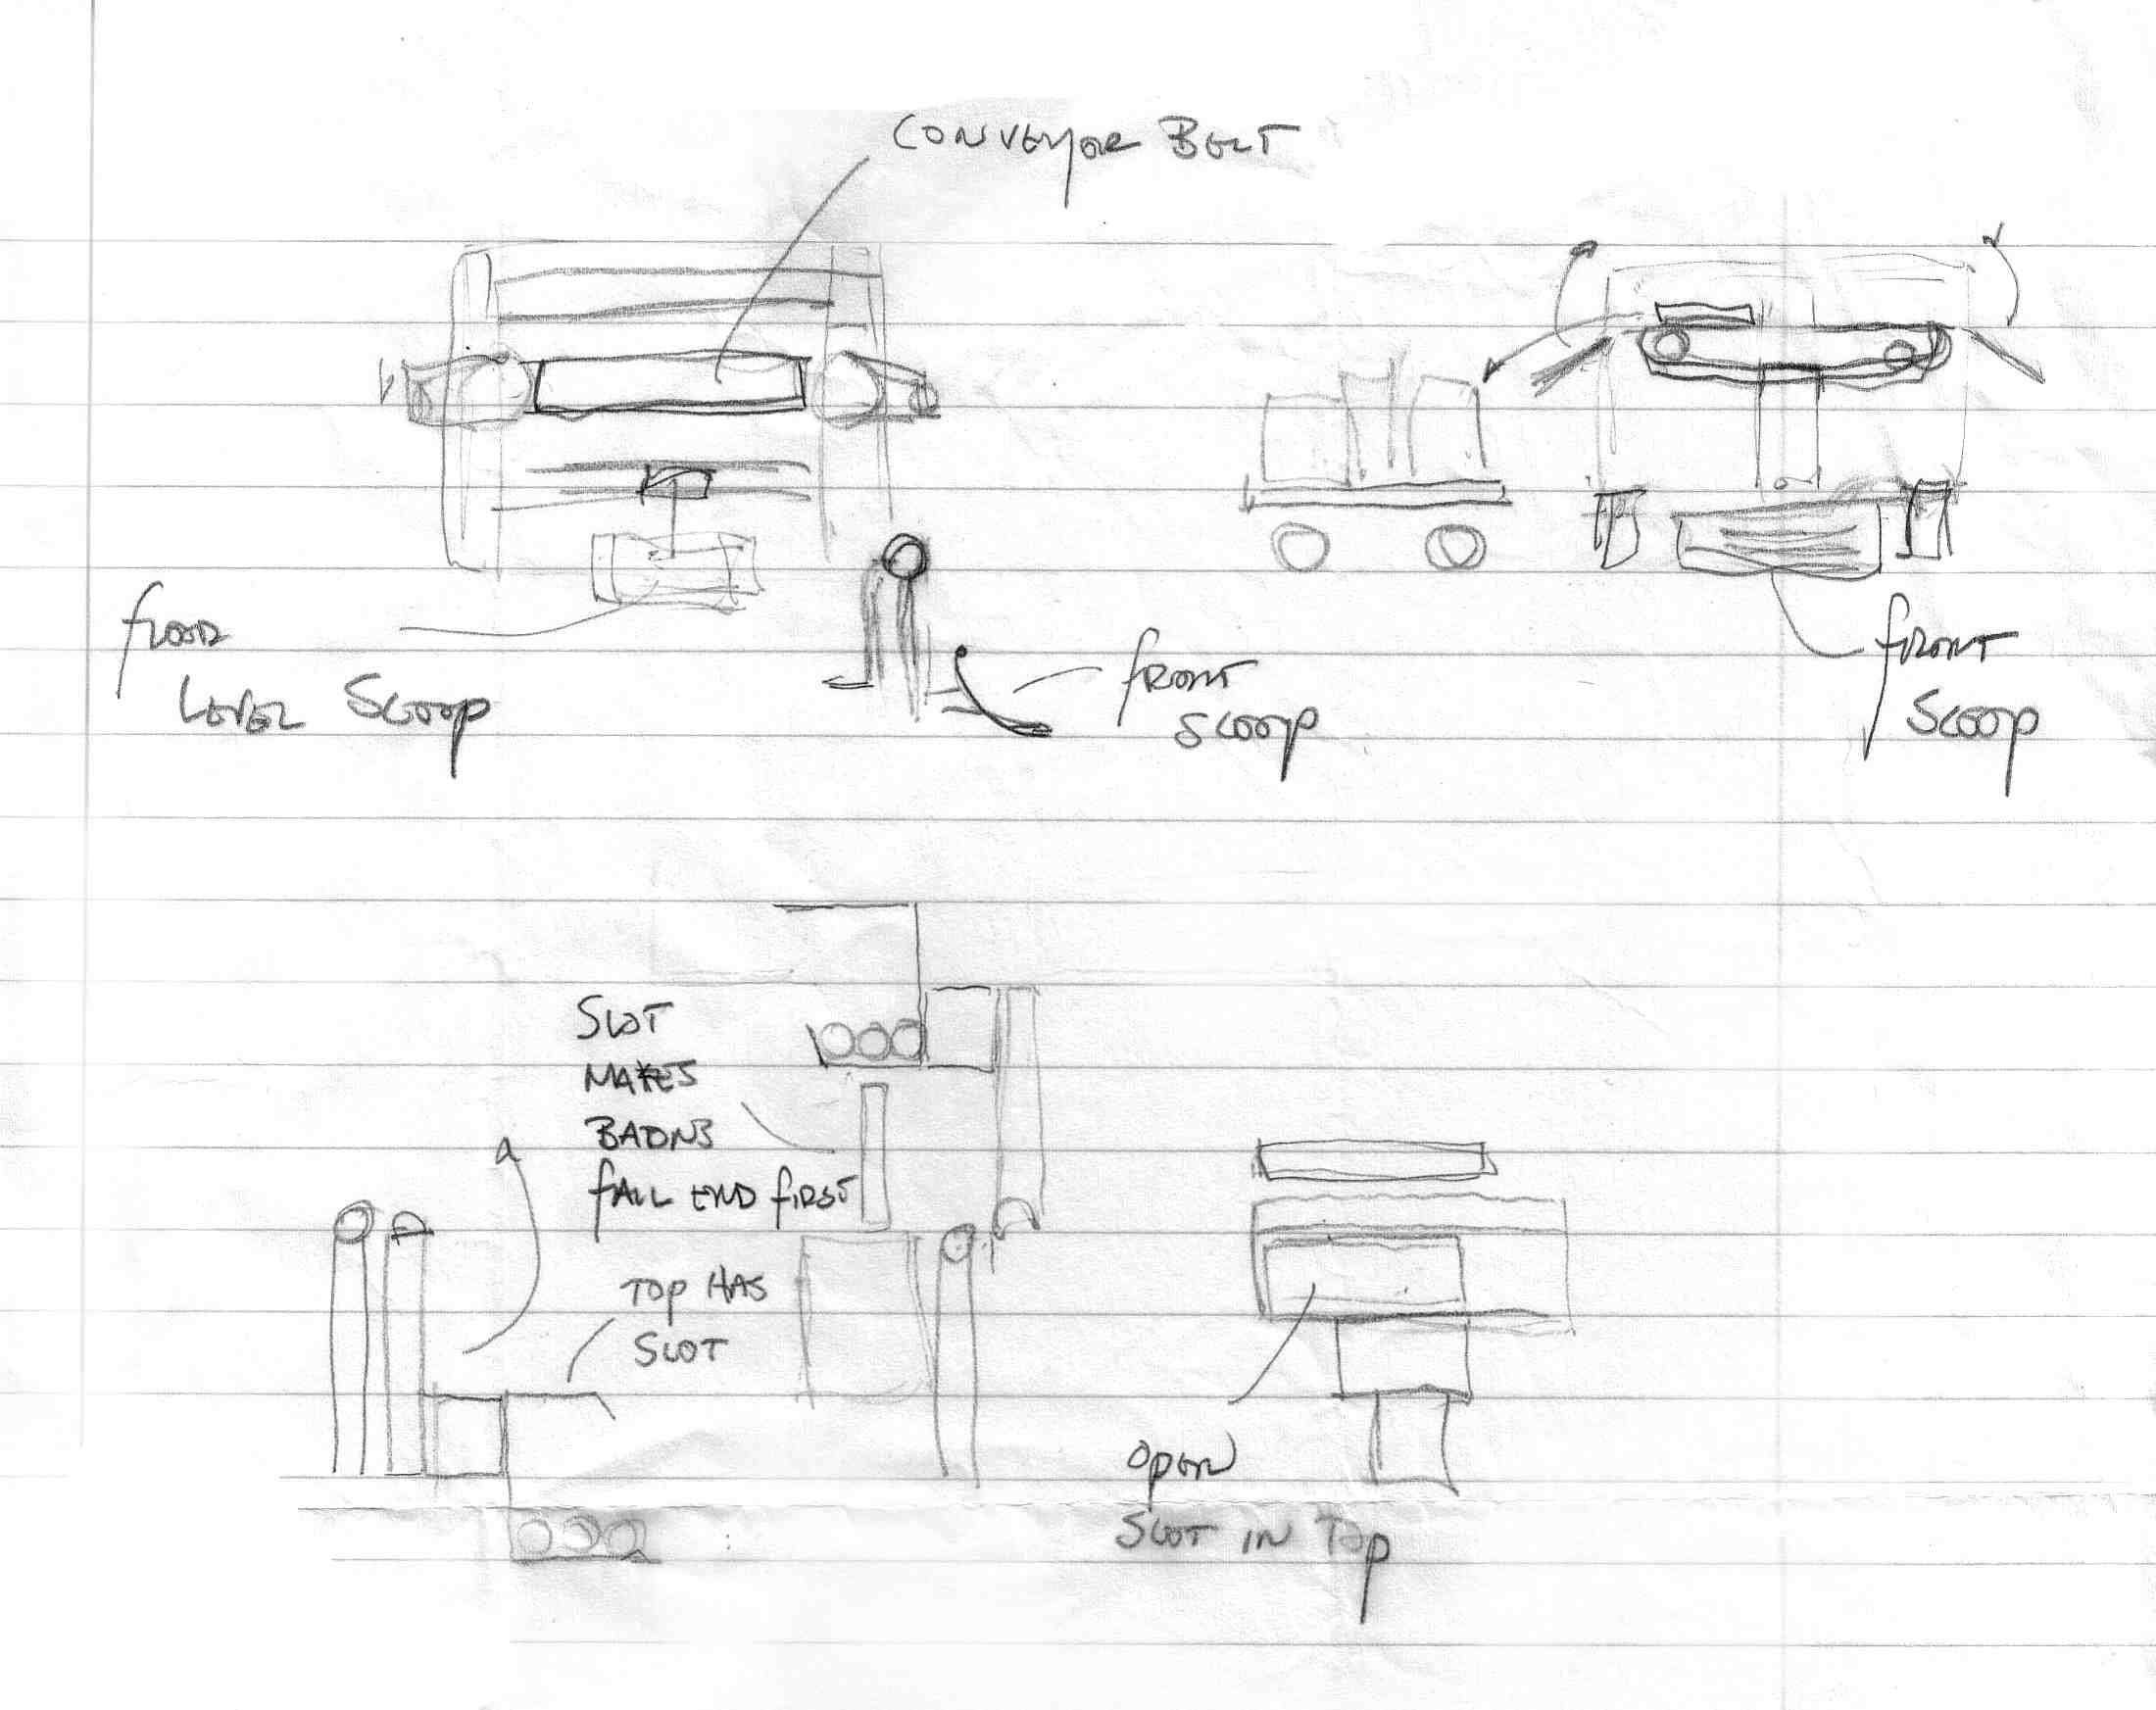 CONVEYOR BELT
FLOOR
LEVEL SCOOP
FRONT
SCOOP
FRONT
SCOOP
SLOT
MAKES
BATONS
FALL END FIRST
TOP HAS
SLOT
OPEN
SLOT IN TOP